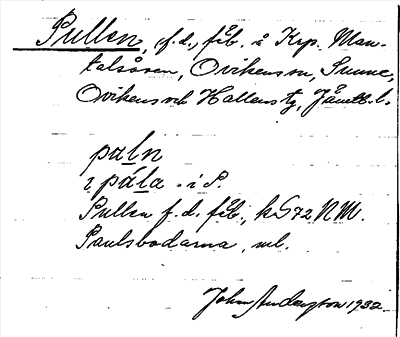 Pullen, (f.d.) fäb. i Krp. Man-
talsåsen, Ovikens sn, Sunne,
Ovikens och Hallens tg, Jämtl. l.
paln
i påla . i S.
Pullen f.d. fäb., k G 72 N M.
Paulsbodarna, ub.
John Anderzson 1932.